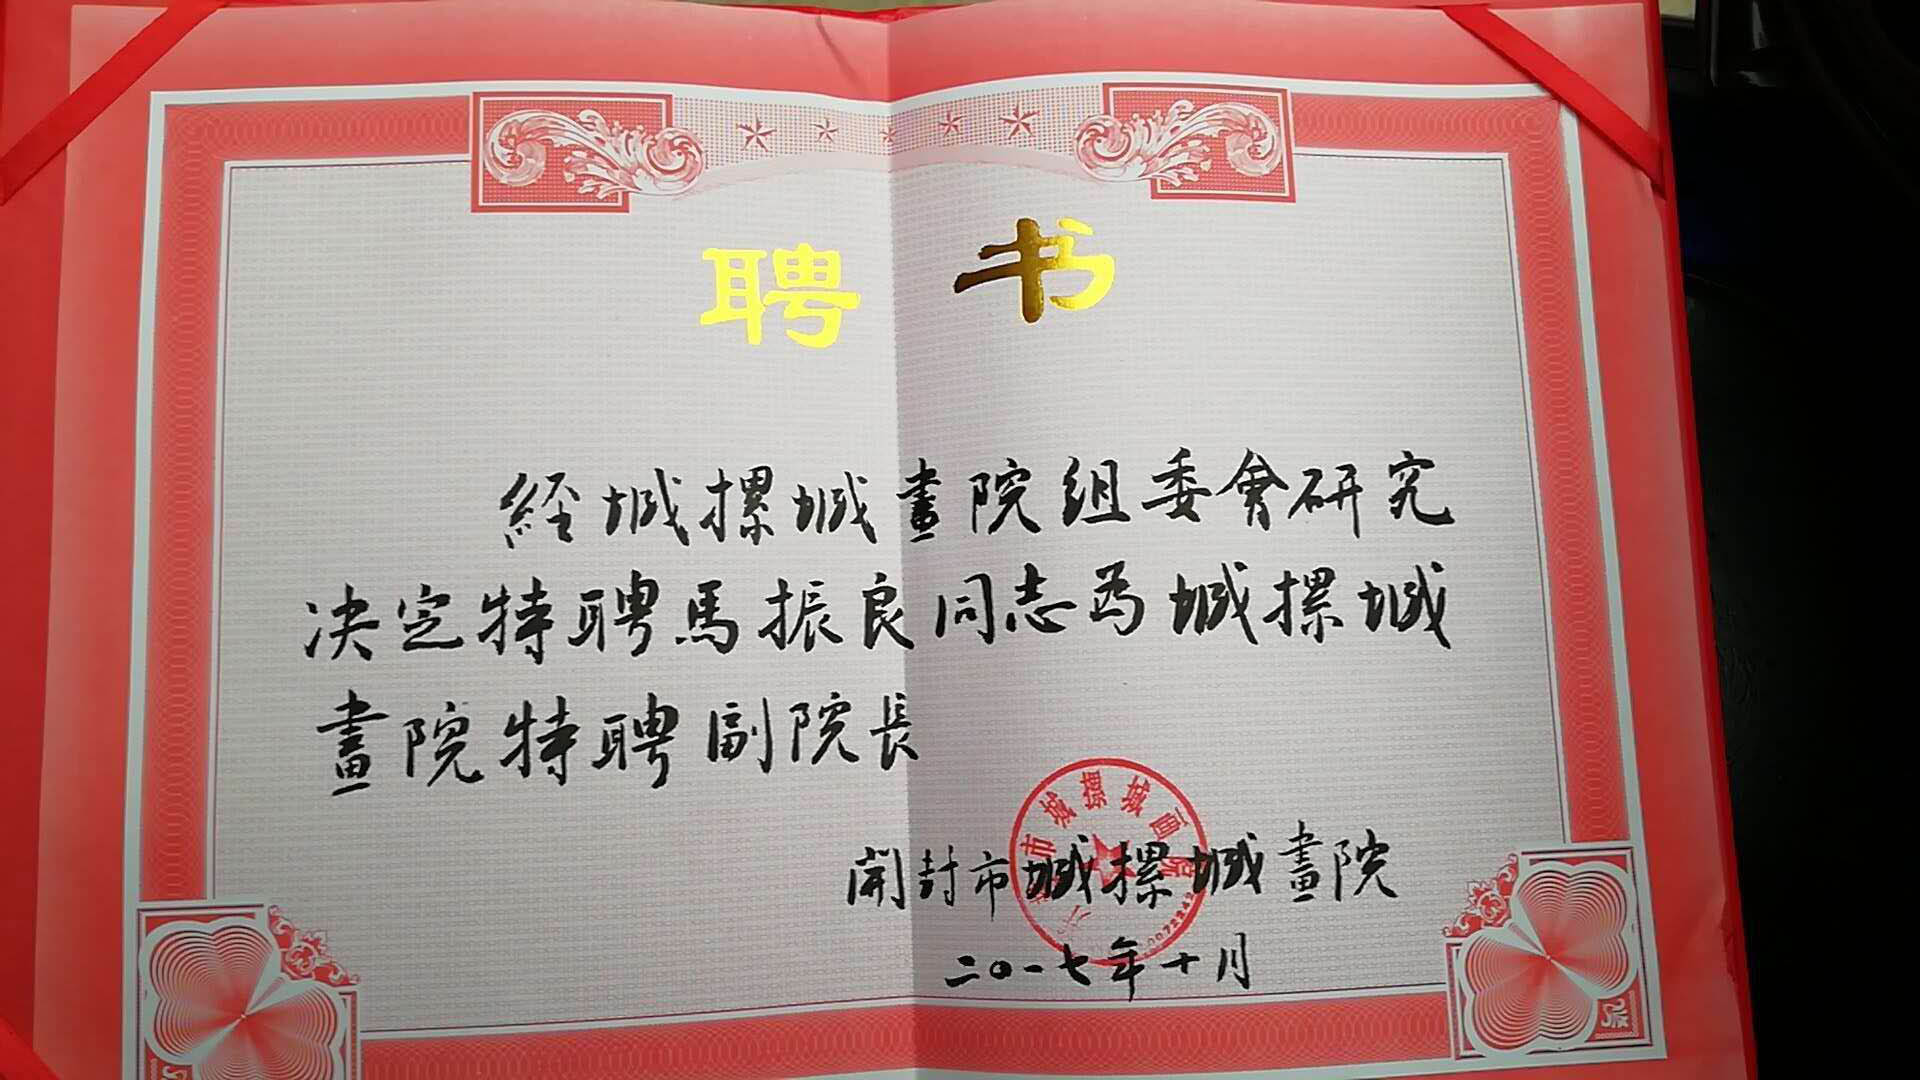 聘书
經城摞城畫院組委會研究
决定特聘馬振良同志为城摞城
畫院特聘副院長
市城摞城画院
開封市城摞城畫院
二〇一七年十月